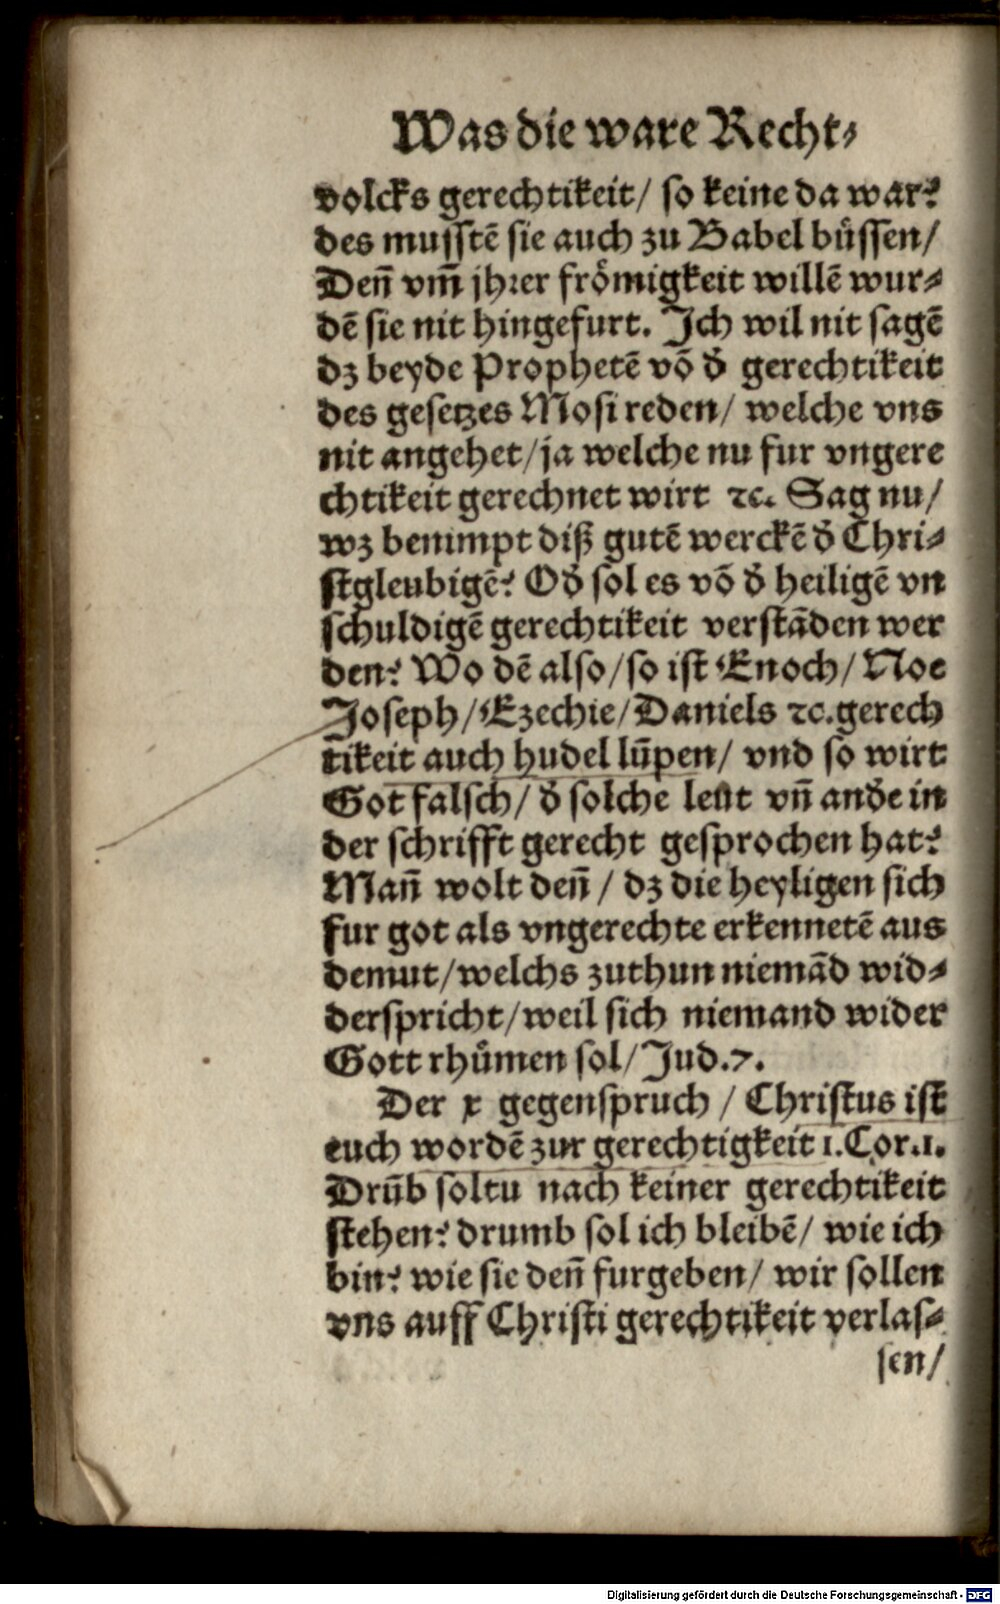 Was die ware Recht⸗
volcks gerechtikeit/ so keine da war?
des musstē sie auch zu Babel büssen/
Deñ vm̄ jhrer frömigkeit willē wur⸗
dē sie nit hingefurt. Ich wil nit sagē
dz beyde Prophetē vō d̄ gerechtikeit
des gesetzes Mosi reden/ welche vns
nit angehet/ ja welche nu fur vngere
chtikeit gerechnet wirt ꝛc. Sag nu/
wz benimpt diß gutē werckē d̄ Chri⸗
stgleubigē? Od̄ sol es vō d̄ heiligē vn
schuldigē gerechtikeit verstāden wer
den? Wo dē also/ so ist Enoch/ Noe
Joseph/ Ezechie/ Daniels ꝛc. gerech
tikeit auch hudel lūpen/ vnd so wirt
Got falsch/ d̄ solche leut vñ and̄e in
der schrifft gerecht gesprochen hat?
Mañ wolt deñ/ dz die heyligen sich
fur got als vngerechte erkennetē aus
demut/ welchs zuthun niemād wid⸗
derspricht/ weil sich niemand wider
Gott rhümen sol/ Jud.7.
Der x gegenspruch/ Christus ist
euch wordē zur gerechtigkeit 1. Cor.1.
Drūb soltu nach keiner gerechtikeit
stehen? drumb sol ich bleibē/ wie ich
bin? wie sie deñ furgeben/ wir sollen
vns auff Christi gerechtikeit verlas⸗
sen/
Digitalisierung gefördert durch die Deutsche Forschungsgemeinschaft - DFG